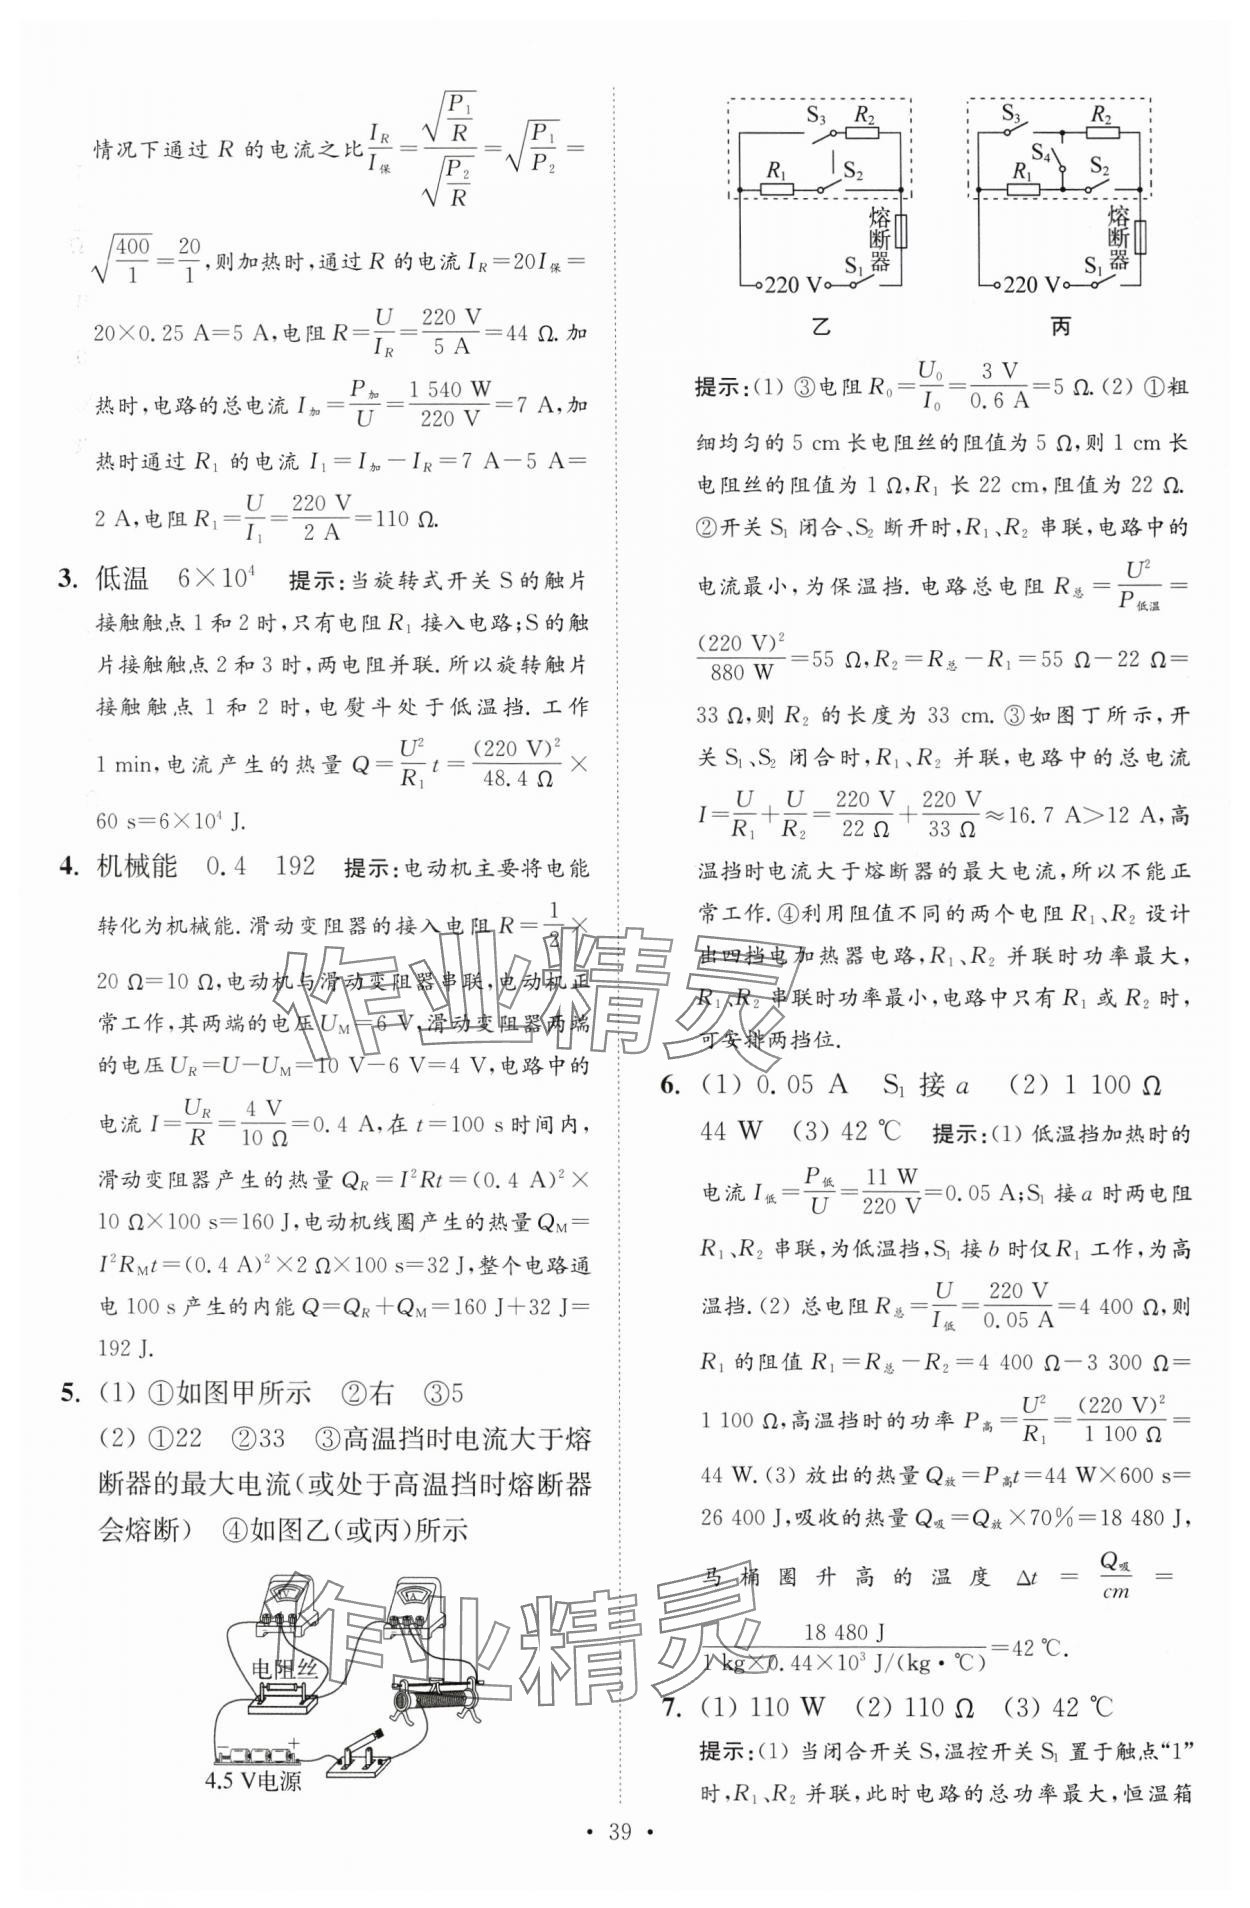 情况下通过 R 的电流之比 I_R/I_保 = √(P₁/R)/√(P₂/R) = √(P₁/P₂) =
√(400/1) = 20/1,则加热时,通过 R 的电流 I_R=20I_保=
20×0.25 A=5 A,电阻 R= U/I_R = 220 V/5 A =44 Ω.加
热时,电路的总电流 I_加= P_加/U = 1 540 W/220 V =7 A,加
热时通过 R₁ 的电流 I₁=I_加−I_R=7 A−5 A=
2 A,电阻 R₁= U/I₁ = 220 V/2 A =110 Ω.
3. 低温 6×10⁴ 提示:当旋转式开关 S 的触片
接触触点 1 和 2 时,只有电阻 R₁ 接入电路;S 的触
片接触触点 2 和 3 时,两电阻并联.所以旋转触片
接触触点 1 和 2 时,电熨斗处于低温挡.工作
1 min,电流产生的热量 Q= U²/R₁ t= (220 V)²/48.4 Ω ×
60 s=6×10⁴ J.
4. 机械能 0.4 192 提示:电动机主要将电能
转化为机械能.滑动变阻器的接入电阻 R= 1/2 ×
20 Ω=10 Ω,电动机与滑动变阻器串联,电动机正
常工作,其两端的电压 U_M=6 V,滑动变阻器两端
的电压 U_R=U−U_M=10 V−6 V=4 V,电路中的
电流 I= U_R/R = 4 V/10 Ω =0.4 A,在 t=100 s 时间内,
滑动变阻器产生的热量 Q_R=I²Rt=(0.4 A)²×
10 Ω×100 s=160 J,电动机线圈产生的热量 Q_M=
I²R_Mt=(0.4 A)²×2 Ω×100 s=32 J,整个电路通
电 100 s 产生的内能 Q=Q_R+Q_M=160 J+32 J=
192 J.
5. (1) ①如图甲所示 ②右 ③5
(2) ①22 ②33 ③高温挡时电流大于熔
断器的最大电流(或处于高温挡时熔断器
会熔断) ④如图乙(或丙)所示
电阻丝
− +
4.5 V电源
S₃ R₂
R₁ S₂
熔断器
S₁
220 V
乙
S₃ R₂
S₄
R₁ S₂
熔断器
S₁
220 V
丙
提示:(1) ③电阻 R₀= U₀/I₀ = 3 V/0.6 A =5 Ω.(2) ①粗
细均匀的 5 cm 长电阻丝的阻值为 5 Ω,则 1 cm 长
电阻丝的阻值为 1 Ω,R₁ 长 22 cm,阻值为 22 Ω.
②开关 S₁ 闭合、S₂ 断开时,R₁、R₂ 串联,电路中的
电流最小,为保温挡.电路总电阻 R_总= U²/P_低温 =
(220 V)²/880 W =55 Ω,R₂=R_总−R₁=55 Ω−22 Ω=
33 Ω,则 R₂ 的长度为 33 cm.③如图丁所示,开
关 S₁、S₂ 闭合时,R₁、R₂ 并联,电路中的总电流
I= U/R₁ + U/R₂ = 220 V/22 Ω + 220 V/33 Ω ≈16.7 A>12 A,高
温挡时电流大于熔断器的最大电流,所以不能正
常工作.④利用阻值不同的两个电阻 R₁、R₂ 设计
出四挡电加热器电路,R₁、R₂ 并联时功率最大,
R₁、R₂ 串联时功率最小,电路中只有 R₁ 或 R₂ 时,
可安排两挡位.
6. (1) 0.05 A S₁ 接 a (2) 1 100 Ω
44 W (3) 42 ℃ 提示:(1) 低温挡加热时的
电流 I_低= P_低/U = 11 W/220 V =0.05 A;S₁ 接 a 时两电阻
R₁、R₂ 串联,为低温挡,S₁ 接 b 时仅 R₁ 工作,为高
温挡.(2) 总电阻 R_总= U/I_低 = 220 V/0.05 A =4 400 Ω,则
R₁ 的阻值 R₁=R_总−R₂=4 400 Ω−3 300 Ω=
1 100 Ω,高温挡时的功率 P_高= U²/R₁ = (220 V)²/1 100 Ω =
44 W.(3) 放出的热量 Q_放=P_高t=44 W×600 s=
26 400 J,吸收的热量 Q_吸=Q_放×70%=18 480 J,
马桶圈升高的温度 Δt = Q_吸/cm =
18 480 J/(1 kg×0.44×10³ J/(kg·℃)) =42 ℃.
7. (1) 110 W (2) 110 Ω (3) 42 ℃
提示:(1) 当闭合开关 S,温控开关 S₁ 置于触点“1”
时,R₁、R₂ 并联,此时电路的总功率最大,恒温箱
• 39 •
作业精灵
作业精灵